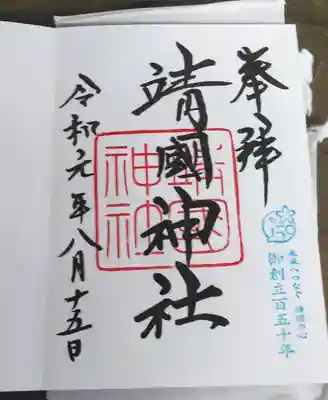 奉拝
靖國神社
令和元年八月十五日
靖國
神社
未来へつなぐ 靖國の心
御創立百五十年